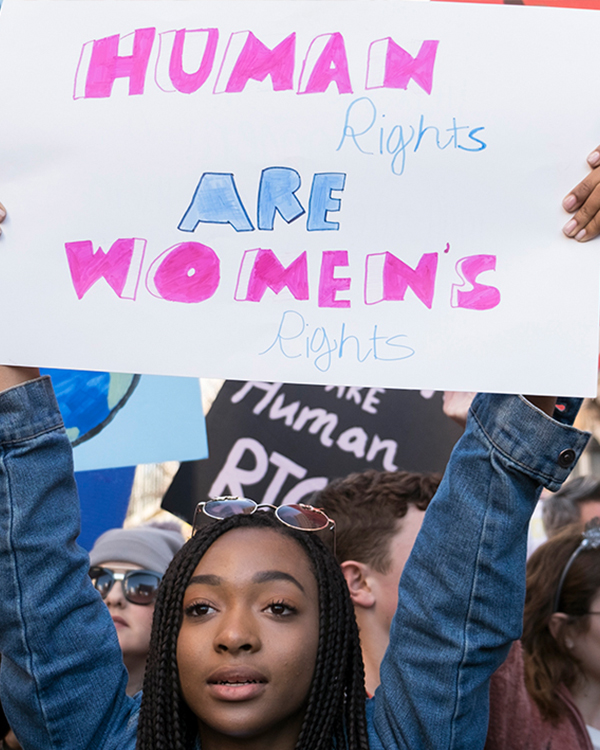 HUMAN
Rights
ARE
WOMEN'S
Rights
ARE
Human